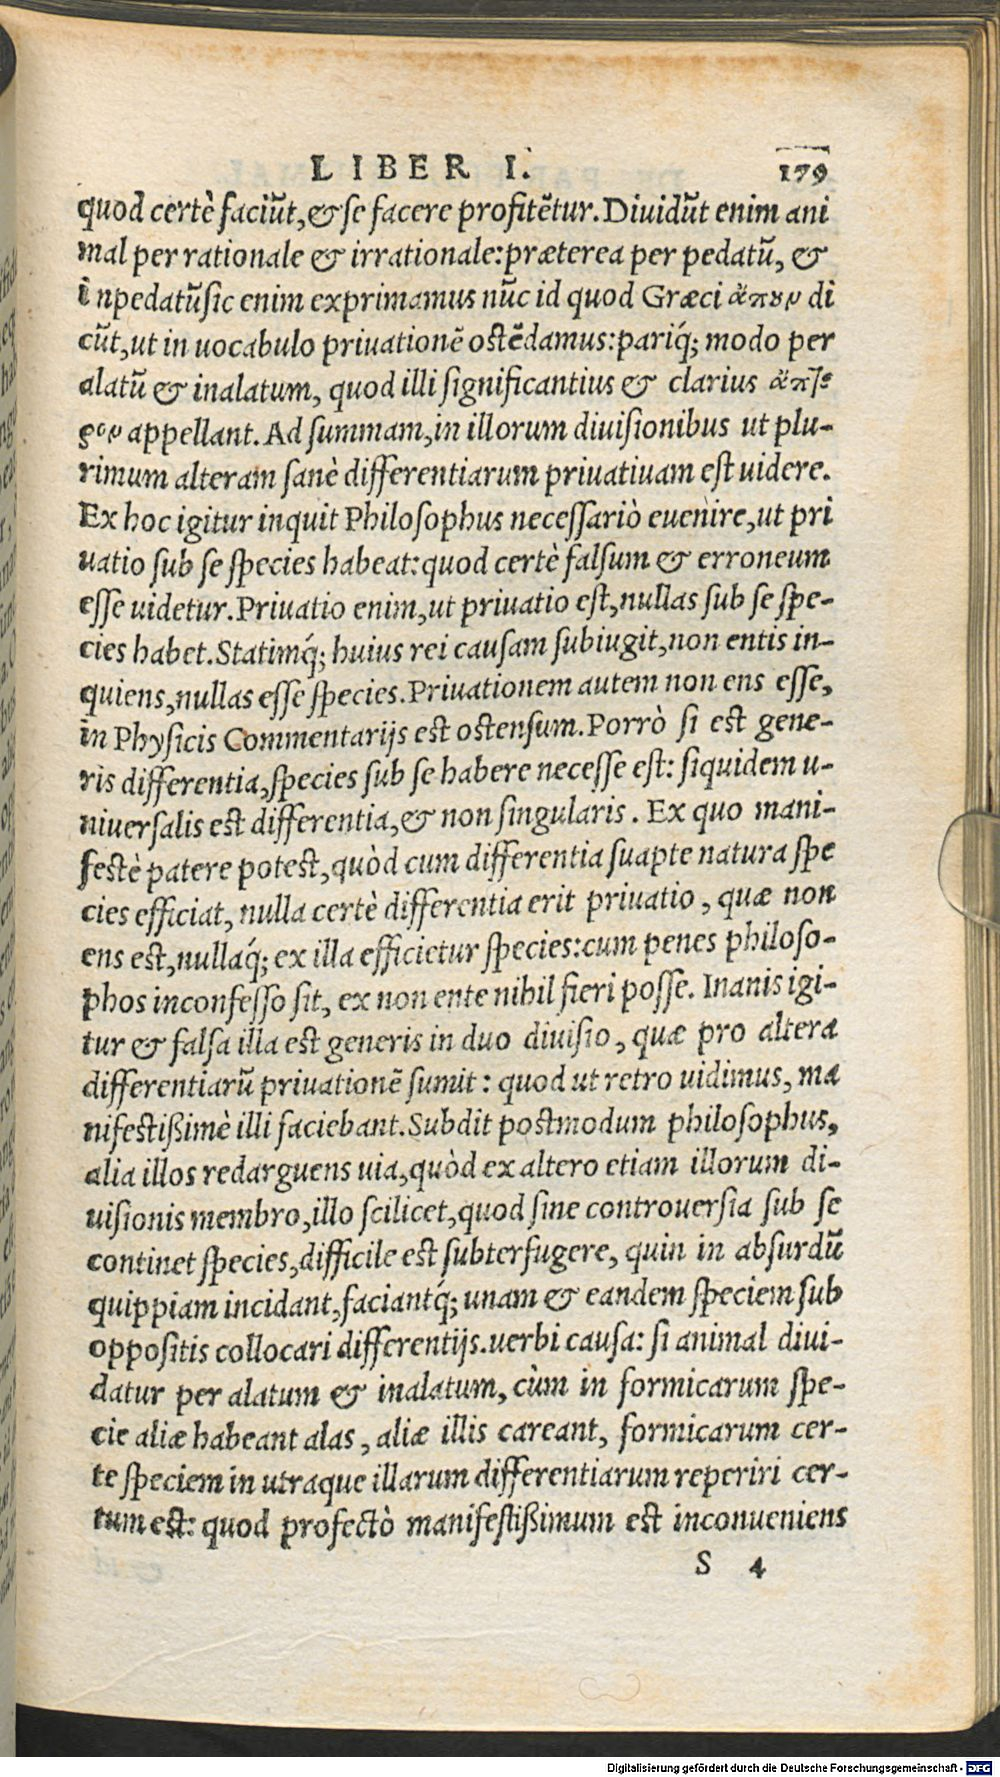 LIBER I. 179
quod certè faciũt, & se facere profitẽtur. Diuidũt enim ani
mal per rationale & irrationale: præterea per pedatũ, &
inpedatũ sic enim exprimamus nũc id quod Græci ἄπουν di
cũt, ut in uocabulo priuationẽ ostẽdamus: pariq́; modo per
alatũ & inalatum, quod illi significantius & clarius ἄπτε
ρον appellant. Ad summam, in illorum diuisionibus ut plu-
rimum alteram sanè differentiarum priuatiuam est uidere.
Ex hoc igitur inquit Philosophus necessariò euenire, ut pri
uatio sub se species habeat: quod certè falsum & erroneum
esse uidetur. Priuatio enim, ut priuatio est, nullas sub se spe-
cies habet. Statimq́; huius rei causam subiugit, non entis in-
quiens, nullas esse species. Priuationem autem non ens esse,
in Physicis Commentarijs est ostensum. Porrò si est gene-
ris differentia, species sub se habere necesse est: siquidem u-
niuersalis est differentia, & non singularis. Ex quo mani-
festè patere potest, quòd cum differentia suapte natura spe
cies efficiat, nulla certè differentia erit priuatio, quæ non
ens est, nullaq́; ex illa efficietur species: cum penes philoso-
phos inconfesso sit, ex non ente nihil fieri posse. Inanis igi-
tur & falsa illa est generis in duo diuisio, quæ pro altera
differentiarũ priuationẽ sumit: quod ut retro uidimus, ma
nifestißimè illi faciebant. Subdit postmodum philosophus,
alia illos redarguens uia, quòd ex altero etiam illorum di-
uisionis membro, illo scilicet, quod sine controuersia sub se
continet species, difficile est subterfugere, quin in absurdũ
quippiam incidant, faciantq́; unam & eandem speciem sub
oppositis collocari differentijs. uerbi causa: si animal diui-
datur per alatum & inalatum, cùm in formicarum spe-
cie aliæ habeant alas, aliæ illis careant, formicarum cer-
te speciem in utraque illarum differentiarum reperiri cer-
tum est: quod profectò manifestißimum est inconueniens
S 4
Digitalisierung gefördert durch die Deutsche Forschungsgemeinschaft - DFG